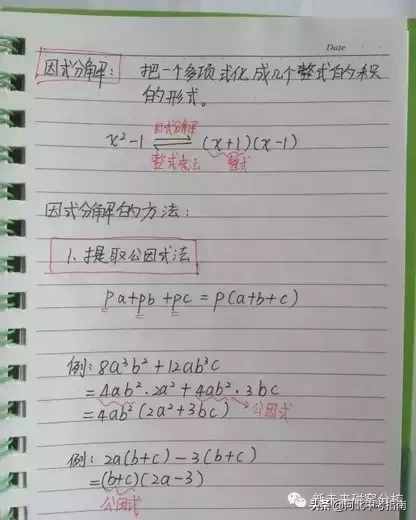 Date
因式分解: 把一个多项式化成几个整式的积
的形式。
因式分解
x²-1 ⇌ (x+1)(x-1)
整式乘法 整式
因式分解的方法:
1.提取公因式法
pa+pb+pc=p(a+b+c)
例: 8a³b²+12ab³c
=4ab²·2a²+4ab²·3bc
=4ab²(2a²+3bc) 公因式
例: 2a(b+c)-3(b+c)
=(b+c)(2a-3)
公因式